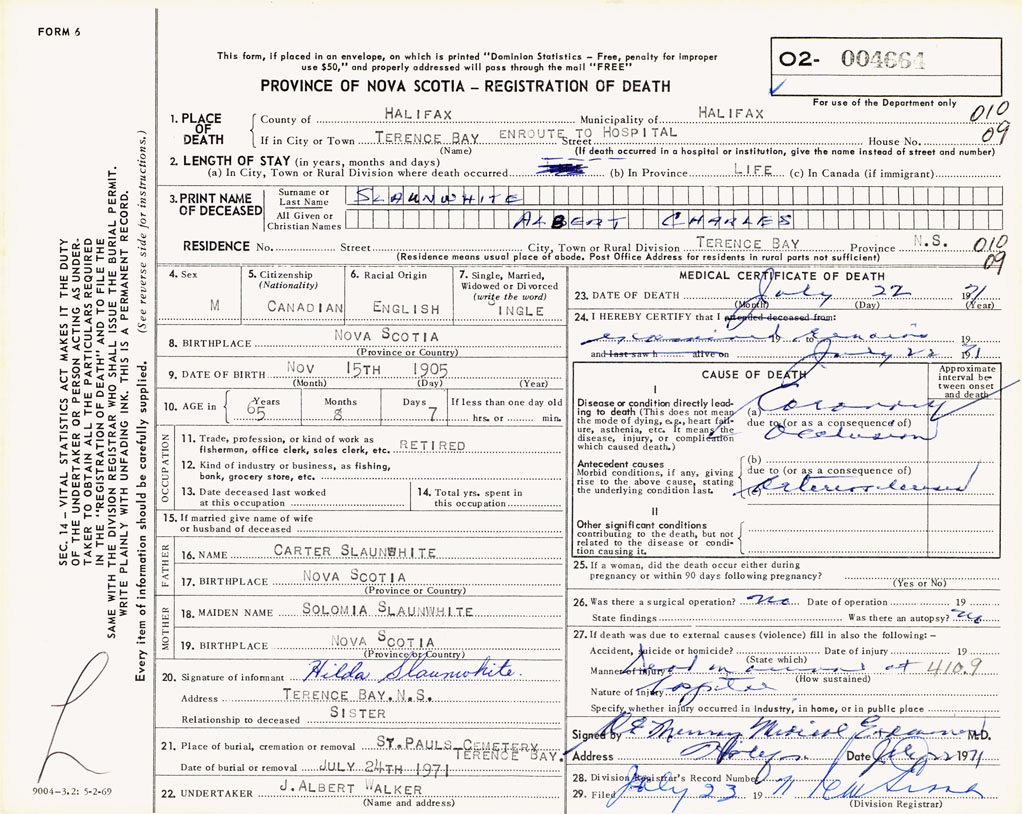 FORM 6
SEC. 14 – VITAL STATISTICS ACT MAKES IT THE DUTY
OF THE UNDERTAKER OR PERSON ACTING AS UNDER-
TAKER TO OBTAIN ALL THE PARTICULARS REQUIRED
IN THE "REGISTRATION OF DEATH" AND TO FILE THE
SAME WITH THE DIVISION REGISTRAR WHO SHALL ISSUE THE BURIAL PERMIT.
WRITE PLAINLY WITH UNFADING INK. THIS IS A PERMANENT RECORD.
Every item of information should be carefully supplied. (See reverse side for instructions.)
9004-3.2: 5-2-69
This form, if placed in an envelope, on which is printed "Dominion Statistics – Free, penalty for improper
use $50," and properly addressed will pass through the mail "FREE"
O2- 004664
PROVINCE OF NOVA SCOTIA – REGISTRATION OF DEATH
For use of the Department only
1. PLACE OF DEATH
County of HALIFAX Municipality of HALIFAX 010
If in City or Town TERENCE BAY Street ENROUTE TO HOSPITAL House No. 09
(Name) (If death occurred in a hospital or institution, give the name instead of street and number)
2. LENGTH OF STAY (in years, months and days)
(a) In City, Town or Rural Division where death occurred (b) In Province LIFE (c) In Canada (if immigrant)
3. PRINT NAME OF DECEASED
Surname or Last Name SLAUNWHITE
All Given or Christian Names ALBERT CHARLES
RESIDENCE No. Street City, Town or Rural Division TERENCE BAY Province N.S. 010
(Residence means usual place of abode. Post Office Address for residents in rural parts not sufficient) 09
4. Sex M
5. Citizenship (Nationality) CANADIAN
6. Racial Origin ENGLISH
7. Single, Married, Widowed or Divorced (write the word) INGLE
8. BIRTHPLACE NOVA SCOTIA
(Province or Country)
9. DATE OF BIRTH NOV 15TH 1905
(Month) (Day) (Year)
10. AGE in Years 65 Months 8 Days 7 If less than one day old hrs. or min.
OCCUPATION
11. Trade, profession, or kind of work as
fisherman, office clerk, sales clerk, etc. RETIRED
12. Kind of industry or business, as fishing,
bank, grocery store, etc.
13. Date deceased last worked
at this occupation
14. Total yrs. spent in
this occupation
15. If married give name of wife
or husband of deceased
FATHER
16. NAME CARTER SLAUNWHITE
17. BIRTHPLACE NOVA SCOTIA
(Province or Country)
MOTHER
18. MAIDEN NAME SOLOMIA SLAUNWHITE
19. BIRTHPLACE NOVA SCOTIA
(Province or Country)
20. Signature of informant Hilda Slaunwhite.
Address TERENCE BAY, N.S.
Relationship to deceased SISTER
21. Place of burial, cremation or removal ST. PAULS CEMETERY
TERENCE BAY.
Date of burial or removal JULY 24TH 1971
22. UNDERTAKER J. ALBERT WALKER
(Name and address)
MEDICAL CERTIFICATE OF DEATH
23. DATE OF DEATH July 22 1971
(Month) (Day) (Year)
24. I HEREBY CERTIFY that I attended deceased from:
examined 19 to remains 19
and last saw h alive on July 22 1971
CAUSE OF DEATH
Approximate interval between onset and death
I
Disease or condition directly lead-
ing to death (This does not mean
the mode of dying, e.g., heart fail-
ure, asthenia, etc. It means the
disease, injury, or complication
which caused death.)
(a) Coronary
due to (or as a consequence of)
Occlusion
Antecedent causes
Morbid conditions, if any, giving
rise to the above cause, stating
the underlying condition last.
(b)
due to (or as a consequence of)
(c) Arteriosclerosis
II
Other significant conditions
contributing to the death, but not
related to the disease or condi-
tion causing it.
25. If a woman, did the death occur either during
pregnancy or within 90 days following pregnancy?
(Yes or No)
26. Was there a surgical operation? No Date of operation 19
State findings Was there an autopsy? No
27. If death was due to external causes (violence) fill in also the following: –
Accident, suicide or homicide? Date of injury 19
(State which)
Manner of injury Dead on arrival at 410.9
(How sustained)
Nature of Injury hospital
Specify whether injury occurred in industry, in home, or in public place
Signed by Murray Medical Examiner M.D.
Address Date July 22 1971
28. Division Registrar's Record Number
29. Filed July 23 1971
(Division Registrar)